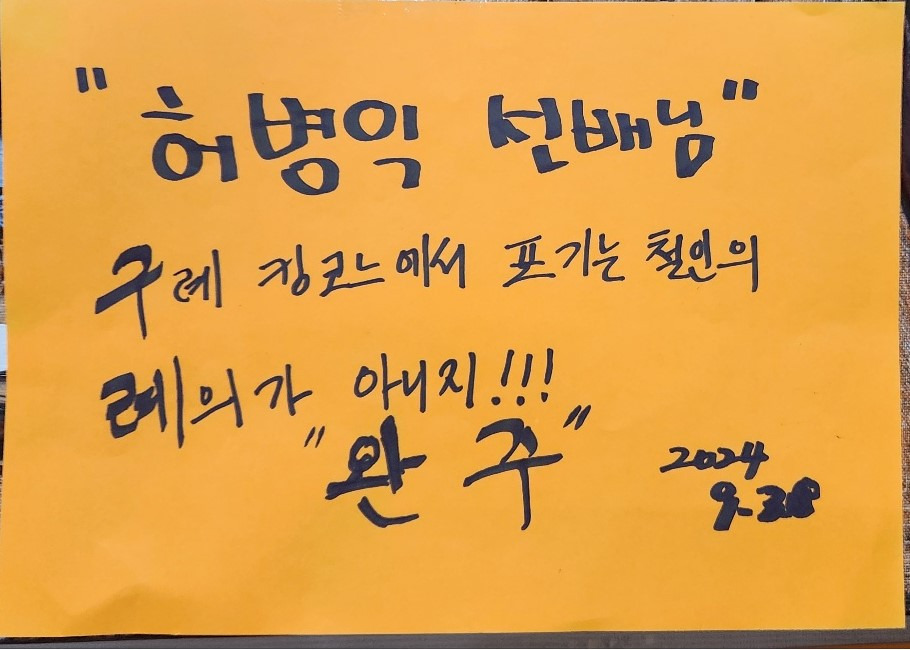 "허병익 선배님"
구례 킹코느에서 포기는 철인의
례의가 아니지!!!
"완주"
2024
9.28